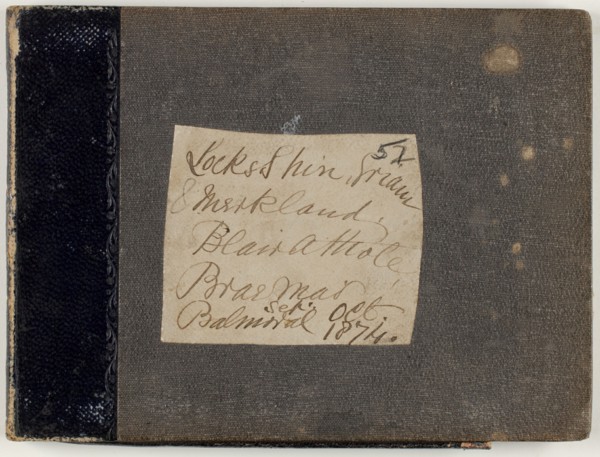 52
Locks Shin, Griam
& Merkland,
Blair Athole
Braemar
Balmoral Sep. Oct.
1874.